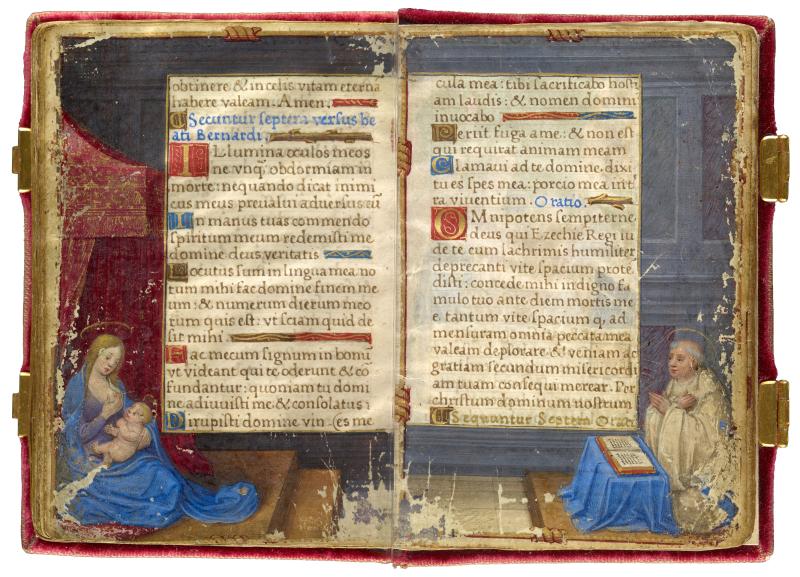 obtinere & in celis vitam eterna
habere valeam. Amen.
Secuntur septem versus be
ati Bernardi.
Illumina oculos meos
ne vnq̄ obdormiam in
morte: nequando dicat inimi
cus meus preualui aduersus eū
In manus tuas commendo
spiritum meum redemisti me
domine deus veritatis
Locutus sum in lingua mea: no
tum mihi fac domine finem me
um: & numerum dierum meo
rum quis est: vt sciam quid de
sit mihi
Fac mecum signum in bonū
vt videant qui te oderunt & cō
fundantur: quoniam tu domi
ne adiuuisti me & consolatus
Dirupisti domine vin (es me
cula mea: tibi sacrificabo host
am laudis: & nomen domini
inuocabo
Periit fuga a me: & non est
qui requirat animam meam
Clamaui ad te domine dixi:
tu es spes mea: porcio mea in
ra viuentium. Oratio.
Omnipotens sempiterne
deus qui Ezechie Regi iu
de te cum lachrimis humiliter
deprecanti vite spacium prote
disti: concede mihi indigno fa
mulo tuo ante diem mortis me
e. tantum vite spacium q, ad
mensuram omnia peccata mea
valeam deplorare & veniam ac
gratiam secundum misericordi
am tuam consequi merear. Per
christum dominum nostrum
Sequuntur Septem Orati